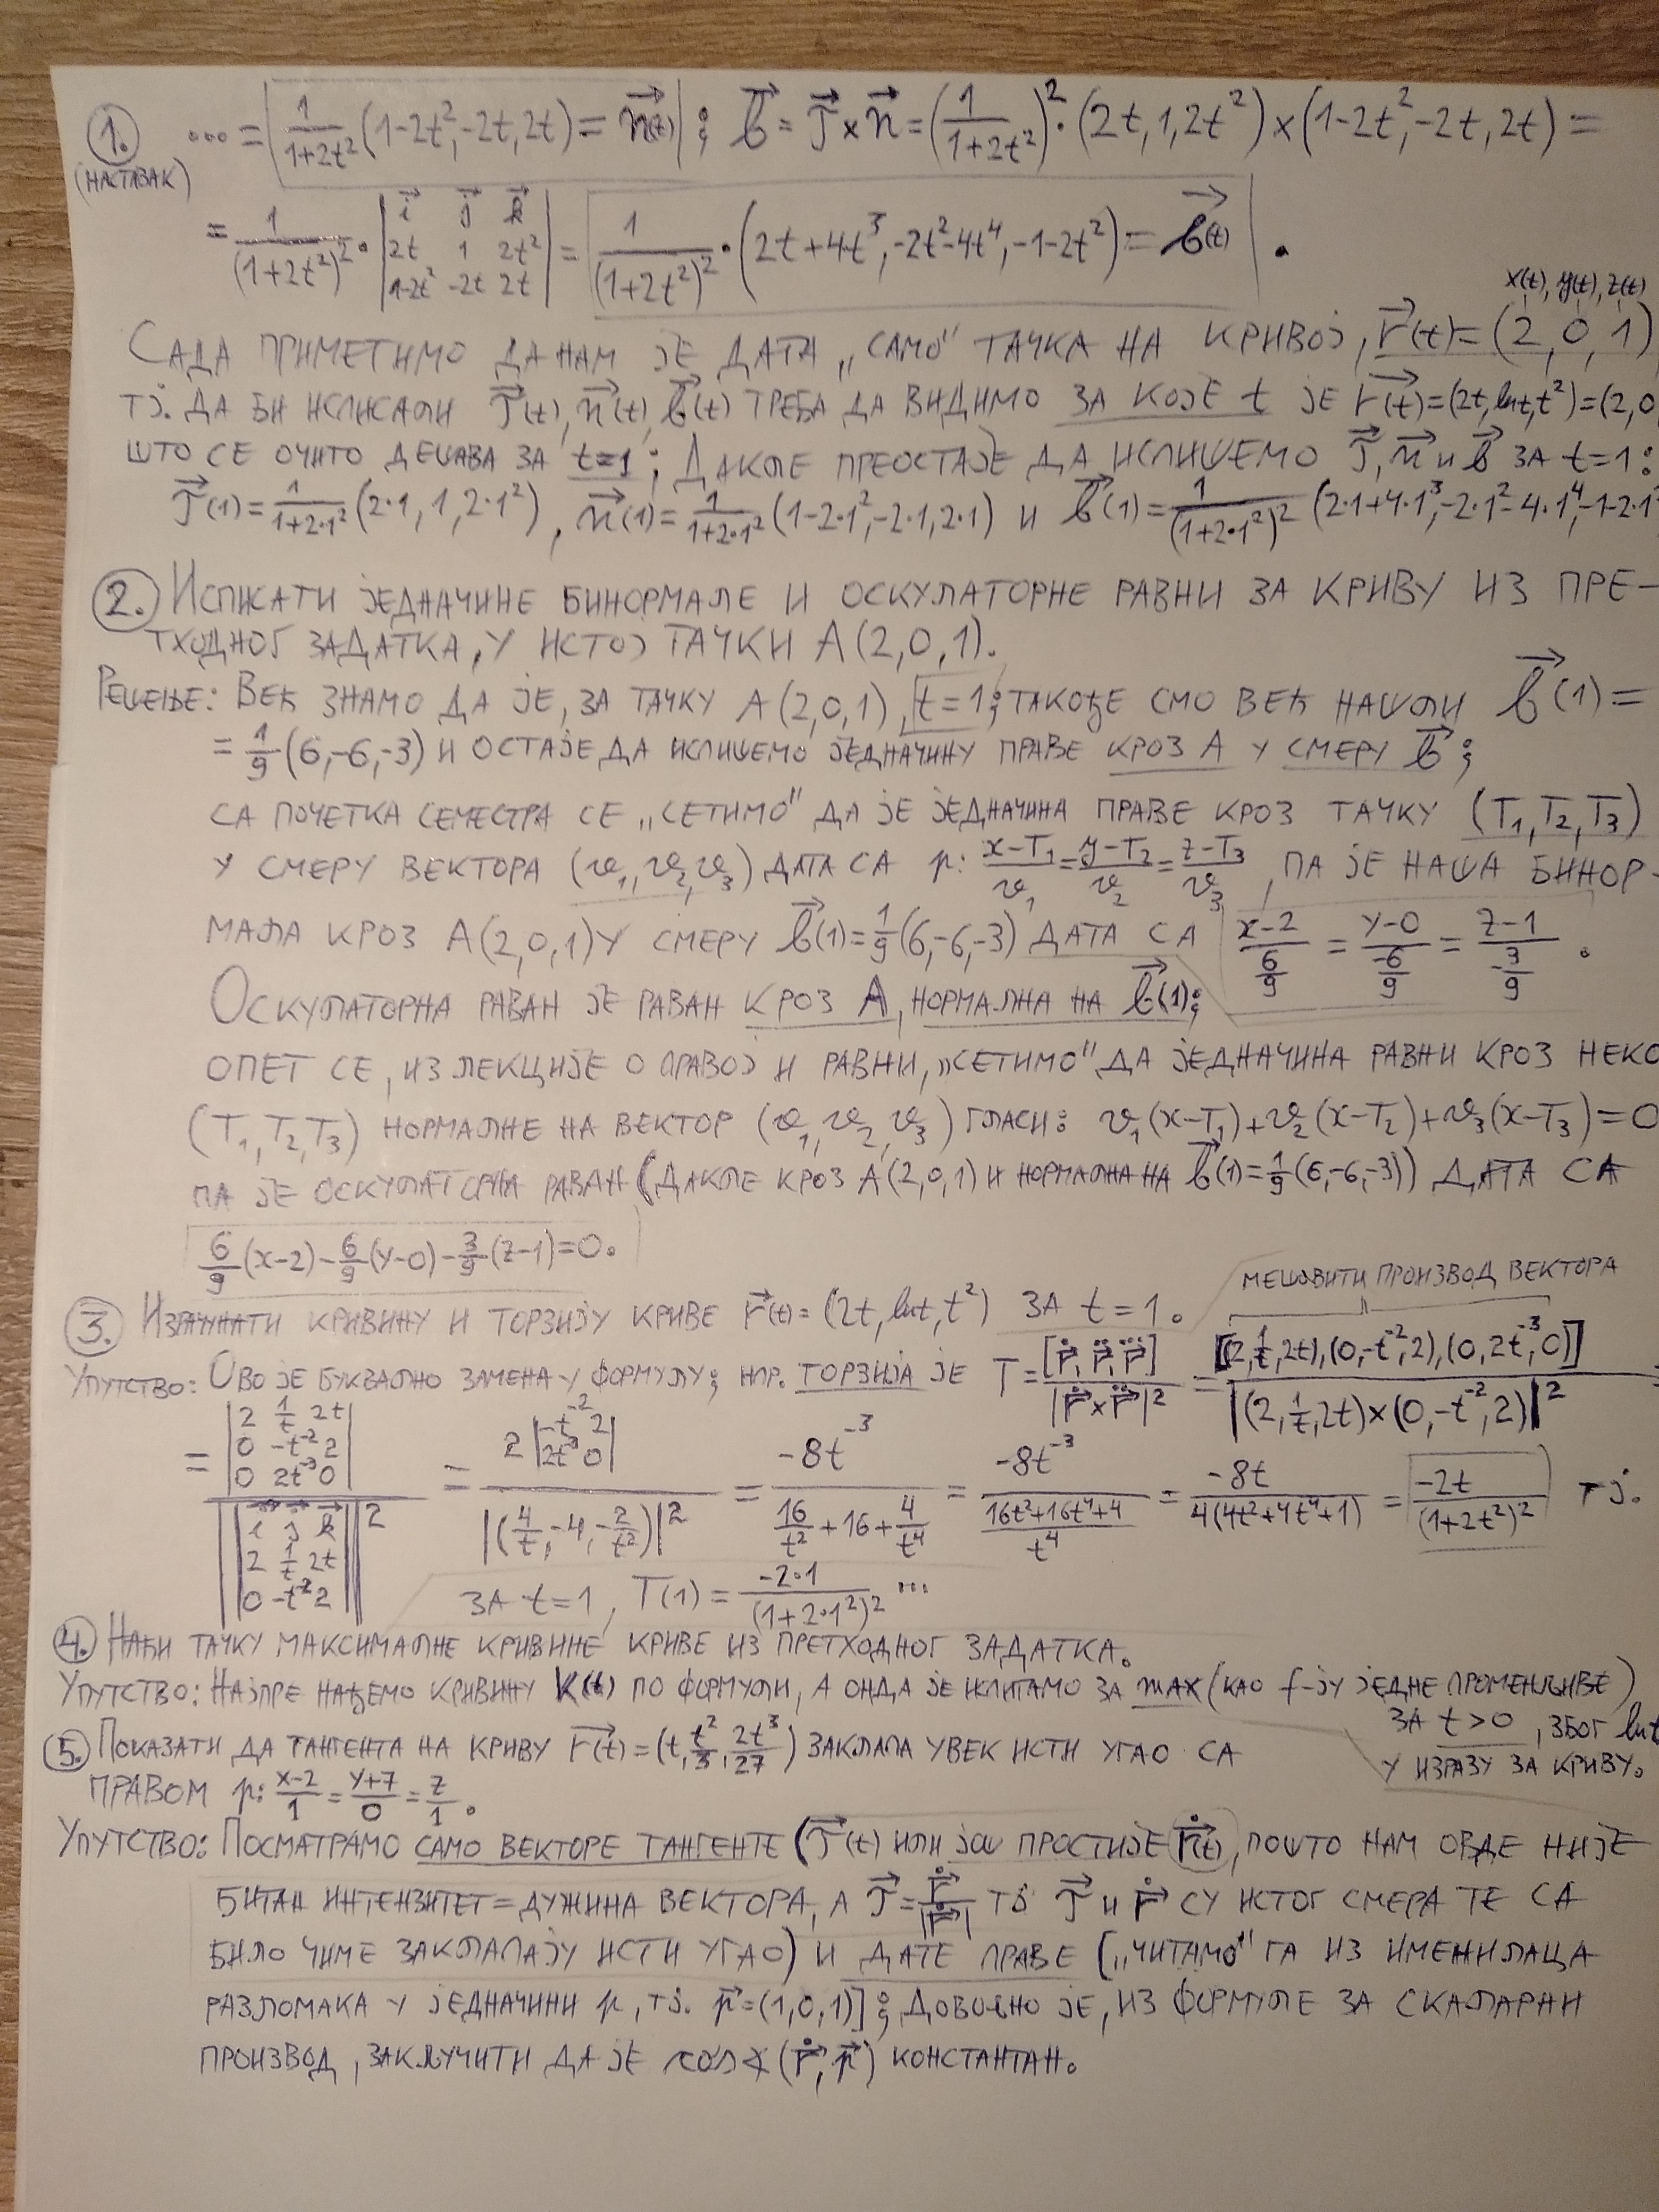 1. (НАСТАВАК) ... = 1/(1+2t²) (1-2t², -2t, 2t) = n⃗(t) ; b⃗ = T⃗ × n⃗ = (1/(1+2t²))² · (2t, 1, 2t²) × (1-2t², -2t, 2t) =
= 1/(1+2t²)² · |i⃗ j⃗ k⃗; 2t 1 2t²; 1-2t² -2t 2t| = 1/(1+2t²)² · (2t+4t³, -2t²-4t⁴, -1-2t²) = b⃗(t) .
x(t), y(t), z(t)
САДА ПРИМЕТИМО ДА НАМ ЈЕ ДАТА „САМО" ТАЧКА НА КРИВОЈ, r⃗(t) = (2, 0, 1)
ТЈ. ДА БИ ИСПИСАЛИ T⃗(t), n⃗(t), b⃗(t) ТРЕБА ДА ВИДИМО ЗА КОЈЕ t ЈЕ r⃗(t) = (2t, ln t, t²) = (2, 0
ШТО СЕ ОЧИТО ДЕШАВА ЗА t=1 ; ДАКЛЕ ПРЕОСТАЈЕ ДА ИСПИШЕМО T⃗, n⃗ И b⃗ ЗА t=1:
T⃗(1) = 1/(1+2·1²) (2·1, 1, 2·1²) , n⃗(1) = 1/(1+2·1²) (1-2·1², -2·1, 2·1) И b⃗(1) = 1/(1+2·1²)² (2·1+4·1³, -2·1²-4·1⁴, -1-2·1²
2. ИСПИСАТИ ЈЕДНАЧИНЕ БИНОРМАЛЕ И ОСКУЛАТОРНЕ РАВНИ ЗА КРИВУ ИЗ ПРЕ-
ТХОДНОГ ЗАДАТКА, У ИСТОЈ ТАЧКИ A(2,0,1).
РЕШЕЊЕ: ВЕЋ ЗНАМО ДА ЈЕ, ЗА ТАЧКУ A(2,0,1), t=1; ТАКОЂЕ СМО ВЕЋ НАШЛИ b⃗(1) =
= 1/9 (6,-6,-3) И ОСТАЈЕ ДА ИСПИШЕМО ЈЕДНАЧИНУ ПРАВЕ КРОЗ A У СМЕРУ b⃗ ;
СА ПОЧЕТКА СЕМЕСТРА СЕ „СЕТИМО" ДА ЈЕ ЈЕДНАЧИНА ПРАВЕ КРОЗ ТАЧКУ (T₁,T₂,T₃)
У СМЕРУ ВЕКТОРА (v₁,v₂,v₃) ДАТА СА p: (x-T₁)/v₁ = (y-T₂)/v₂ = (z-T₃)/v₃ , ПА ЈЕ НАША БИНОР-
МАЛА КРОЗ A(2,0,1) У СМЕРУ b⃗(1) = 1/9 (6,-6,-3) ДАТА СА (x-2)/(6/9) = (y-0)/(-6/9) = (z-1)/(-3/9) .
ОСКУЛАТОРНА РАВАН ЈЕ РАВАН КРОЗ A, НОРМАЛНА НА b⃗(1);
ОПЕТ СЕ, ИЗ ЛЕКЦИЈЕ О ПРАВОЈ И РАВНИ, „СЕТИМО" ДА ЈЕДНАЧИНА РАВНИ КРОЗ НЕКО
(T₁,T₂,T₃) НОРМАЛНЕ НА ВЕКТОР (v₁,v₂,v₃) ГЛАСИ: v₁(x-T₁)+v₂(x-T₂)+v₃(x-T₃)=0
ПА ЈЕ ОСКУЛАТОРНА РАВАН (ДАКЛЕ КРОЗ A(2,0,1) И НОРМАЛНА НА b⃗(1) = 1/9 (6,-6,-3)) ДАТА СА
6/9 (x-2) - 6/9 (y-0) - 3/9 (z-1) = 0.
МЕШОВИТИ ПРОИЗВОД ВЕКТОРА
3. ИЗРАЧУНАТИ КРИВИНУ И ТОРЗИЈУ КРИВЕ r⃗(t) = (2t, ln t, t²) ЗА t=1.
УПУТСТВО: ОВО ЈЕ БУКВАЛНО ЗАМЕНА У ФОРМУЛУ; НПР. ТОРЗИЈА ЈЕ T = [ṙ, r̈, r⃛]/|ṙ × r̈|² = [(2, 1/t, 2t), (0, -t⁻², 2), (0, 2t⁻³, 0)]/|(2, 1/t, 2t) × (0, -t⁻², 2)|² =
= |2 1/t 2t; 0 -t⁻² 2; 0 2t⁻³ 0| / ||i⃗ j⃗ k⃗; 2 1/t 2t; 0 -t⁻² 2||² = 2|-t⁻² 2; 2t⁻³ 0| / |(4/t, -4, -2/t²)|² = -8t⁻³/(16/t² + 16 + 4/t⁴) = -8t⁻³/((16t²+16t⁴+4)/t⁴) = -8t/(4(4t²+4t⁴+1)) = -2t/(1+2t²)² ТЈ.
ЗА t=1, T(1) = -2·1/(1+2·1²)² ...
4. НАЋИ ТАЧКУ МАКСИМАЛНЕ КРИВИНЕ КРИВЕ ИЗ ПРЕТХОДНОГ ЗАДАТКА.
УПУТСТВО: НАЈПРЕ НАЂЕМО КРИВИНУ K(t) ПО ФОРМУЛИ, А ОНДА ЈЕ ИСПИТАМО ЗА max (КАО f-ЈУ ЈЕДНЕ ПРОМЕНЉИВЕ)
ЗА t>0, ЗБОГ ln t
У ИЗРАЗУ ЗА КРИВУ.
5. ПОКАЗАТИ ДА ТАНГЕНТА НА КРИВУ r⃗(t) = (t, t²/3, 2t³/27) ЗАКЛАПА УВЕК ИСТИ УГАО СА
ПРАВОМ p: (x-2)/1 = (y+7)/0 = z/1 .
УПУТСТВО: ПОСМАТРАМО САМО ВЕКТОРЕ ТАНГЕНТЕ (T⃗(t) ИЛИ ЈОШ ПРОСТИЈЕ ṙ(t), ПОШТО НАМ ОВДЕ НИЈЕ
БИТАН ИНТЕНЗИТЕТ = ДУЖИНА ВЕКТОРА, А T⃗ = ṙ/|ṙ| ТЈ. T⃗ И ṙ СУ ИСТОГ СМЕРА ТЕ СА
БИЛО ЧИМЕ ЗАКЛАПАЈУ ИСТИ УГАО) И ДАТЕ ПРАВЕ [„ЧИТАМО" ГА ИЗ ИМЕНИЛАЦА
РАЗЛОМАКА У ЈЕДНАЧИНИ p, ТЈ. p⃗ = (1,0,1)] ; ДОВОЉНО ЈЕ, ИЗ ФОРМУЛЕ ЗА СКАЛАРНИ
ПРОИЗВОД, ЗАКЉУЧИТИ ДА ЈЕ cos∢(ṙ, p⃗) КОНСТАНТАН.